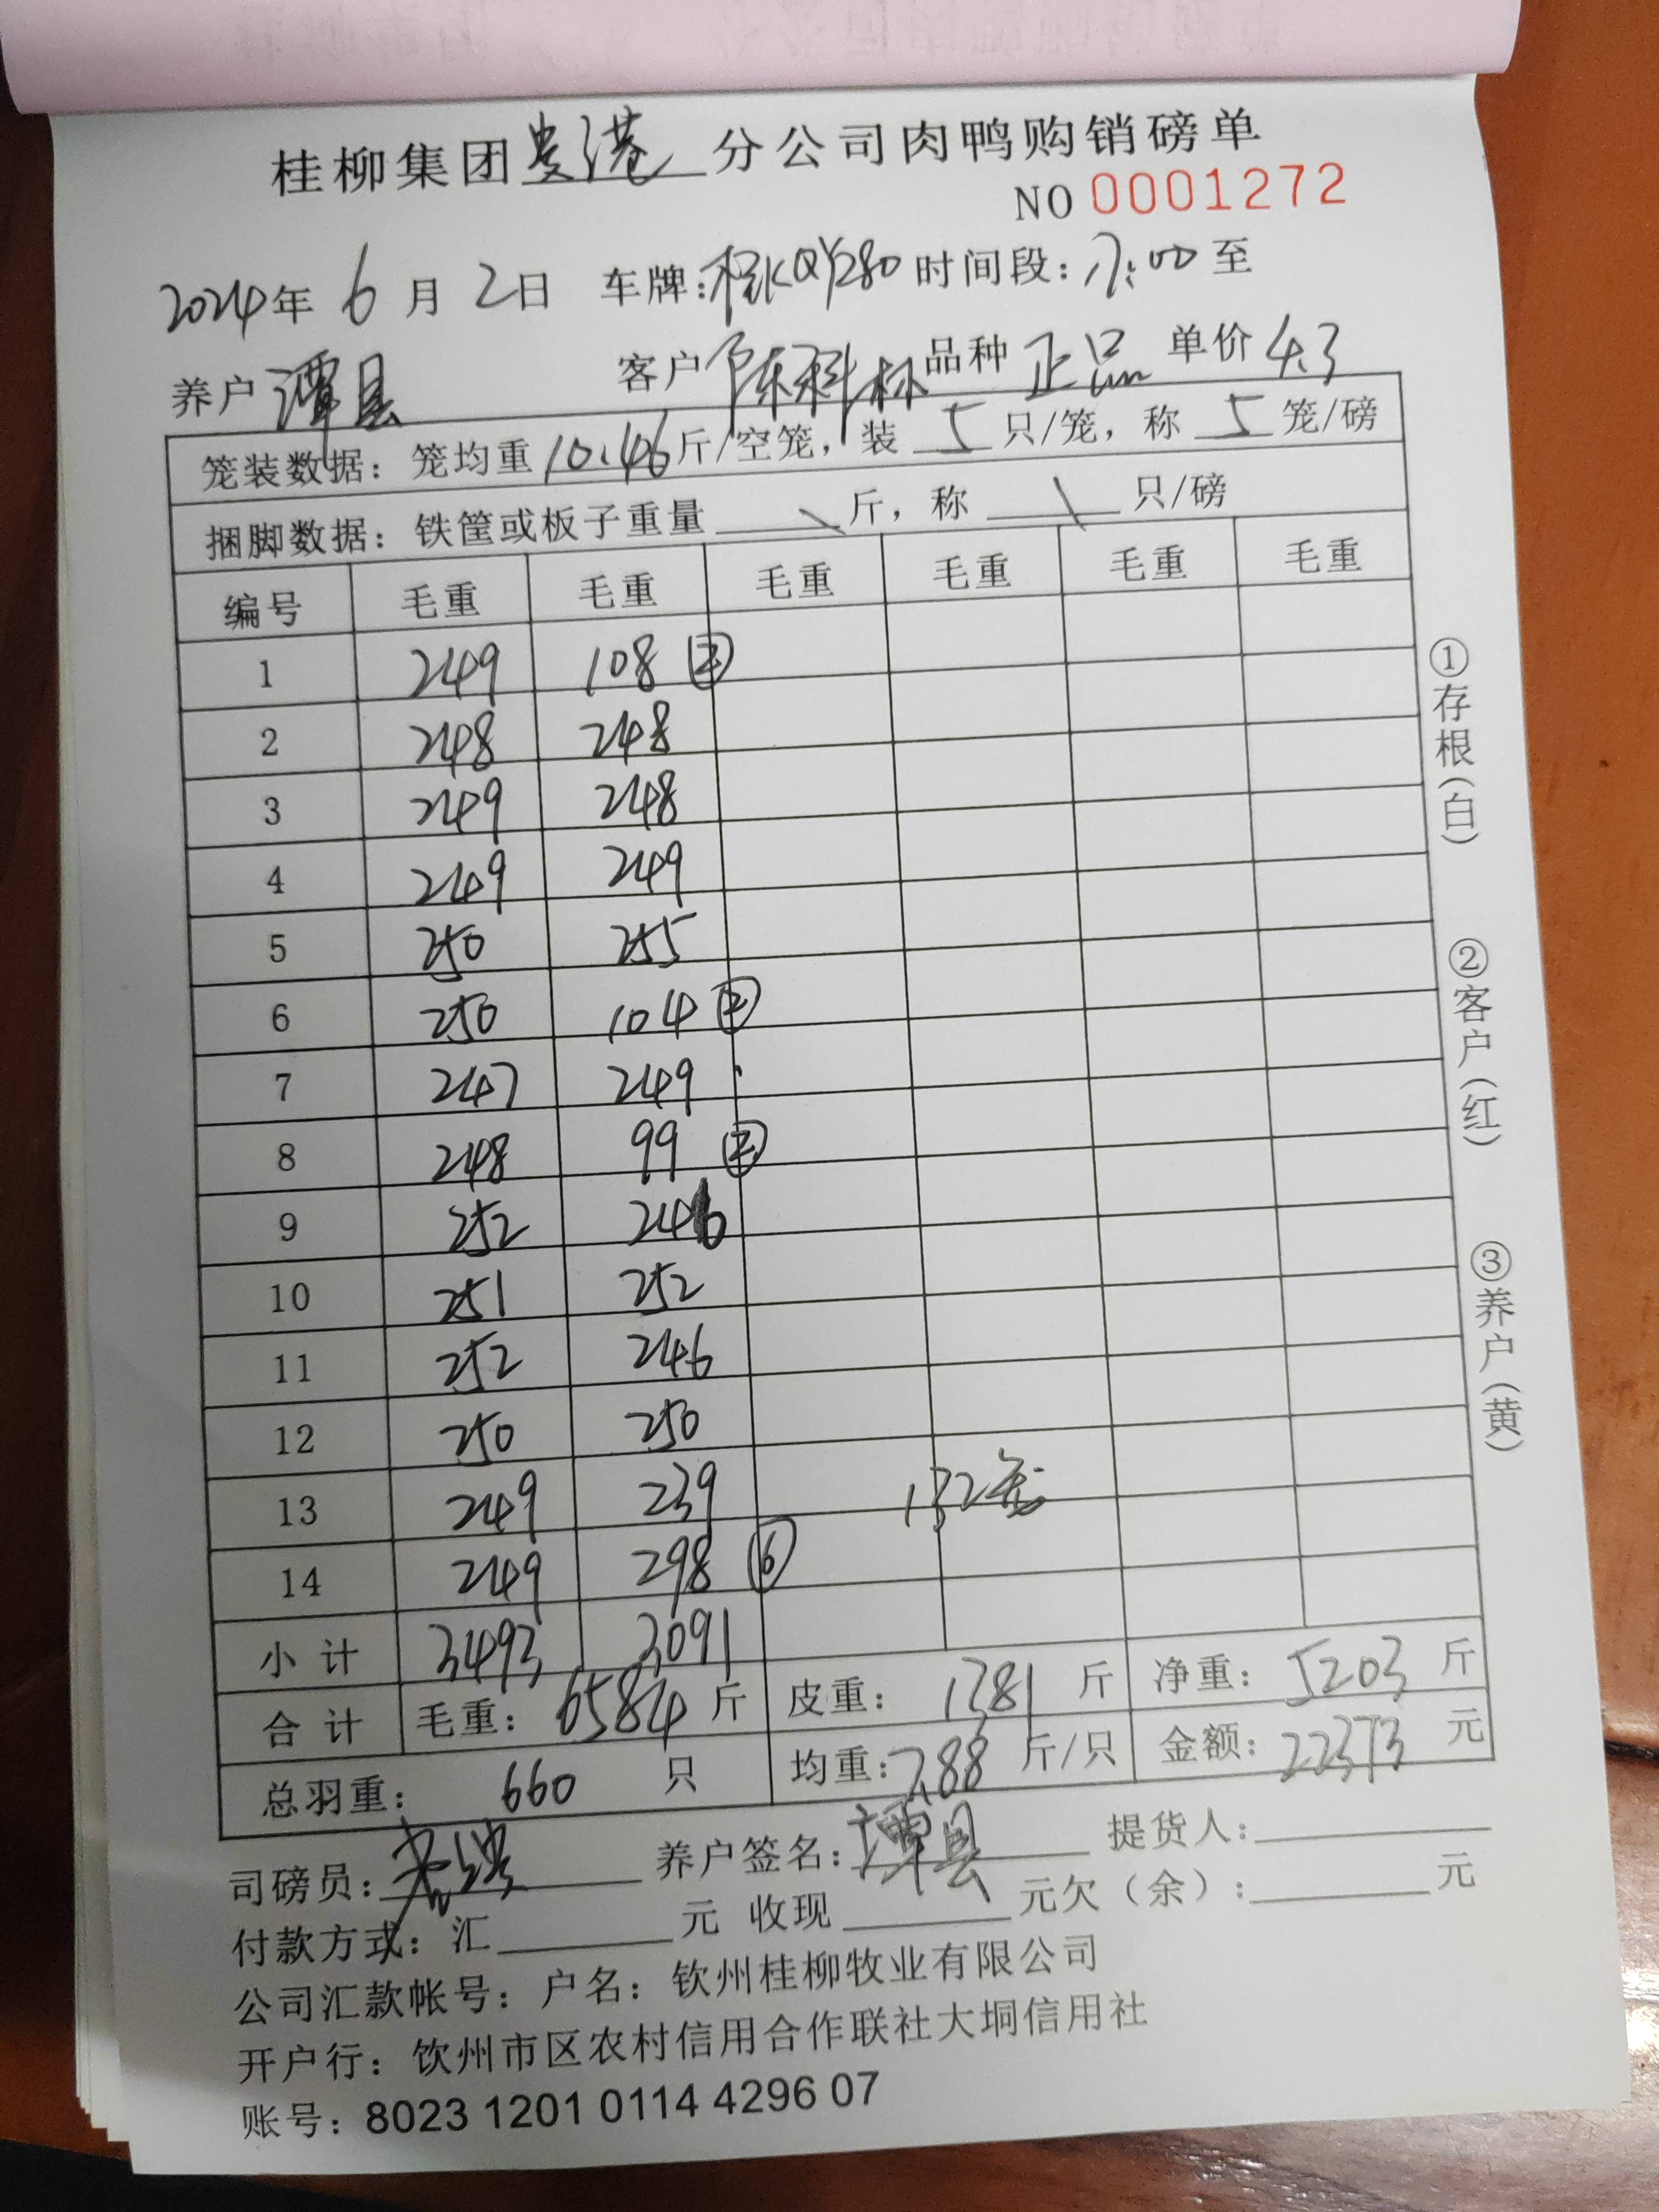 桂柳集团贵港分公司肉鸭购销磅单
NO 0001272
2024年 6 月 2日 车牌:桂KQY280 时间段:7:00 至
养户 谭县 客户 陈科林 品种 正品 单价 4.3
笼装数据: 笼均重 10.46 斤/空笼, 装 5 只/笼, 称 5 笼/磅
捆脚数据: 铁筐或板子重量 \ 斤, 称 \ 只/磅
编号 毛重 毛重 毛重 毛重 毛重 毛重
1 249 108 ②
2 248 248
3 249 248
4 249 249
5 250 255
6 250 104 ②
7 247 249
8 248 99 ②
9 252 246
10 251 252
11 252 246
12 250 250
13 249 239 132笼
14 249 298 ⑥
小计 3493 3091
合计 毛重: 6584 斤 皮重: 1381 斤 净重: 5203 斤
总羽重: 660 只 均重: 7.88 斤/只 金额: 22373 元
司磅员: 养户签名: 谭县 提货人:
付款方式: 汇 元 收现 元欠(余): 元
公司汇款帐号: 户名: 钦州桂柳牧业有限公司
开户行: 钦州市区农村信用合作联社大垌信用社
账号: 8023 1201 0114 4296 07
①存根(白) ②客户(红) ③养户(黄)